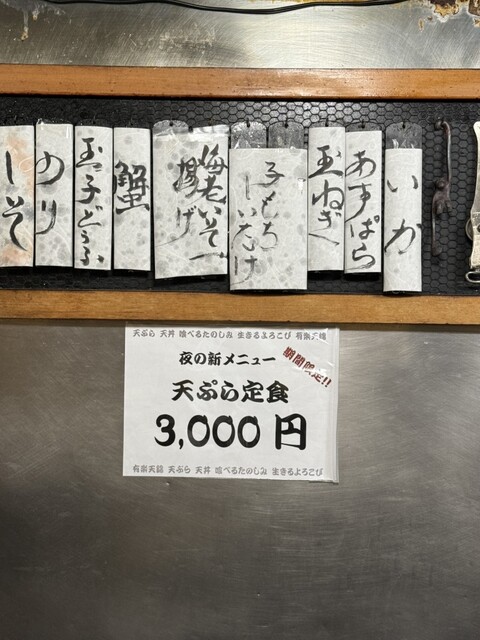 いか
あすぱら
玉ねぎ
子もち
しいたけ
海老いそべ
揚げ
蟹
玉子どうふ
のり
しそ
天ぷら 天丼 喰べるたのしみ 生きるよろこび 有楽天鶴
夜の新メニュー
期間限定!!
天ぷら定食
3,000円
有楽天鶴 天ぷら 天丼 喰べるたのしみ 生きるよろこび